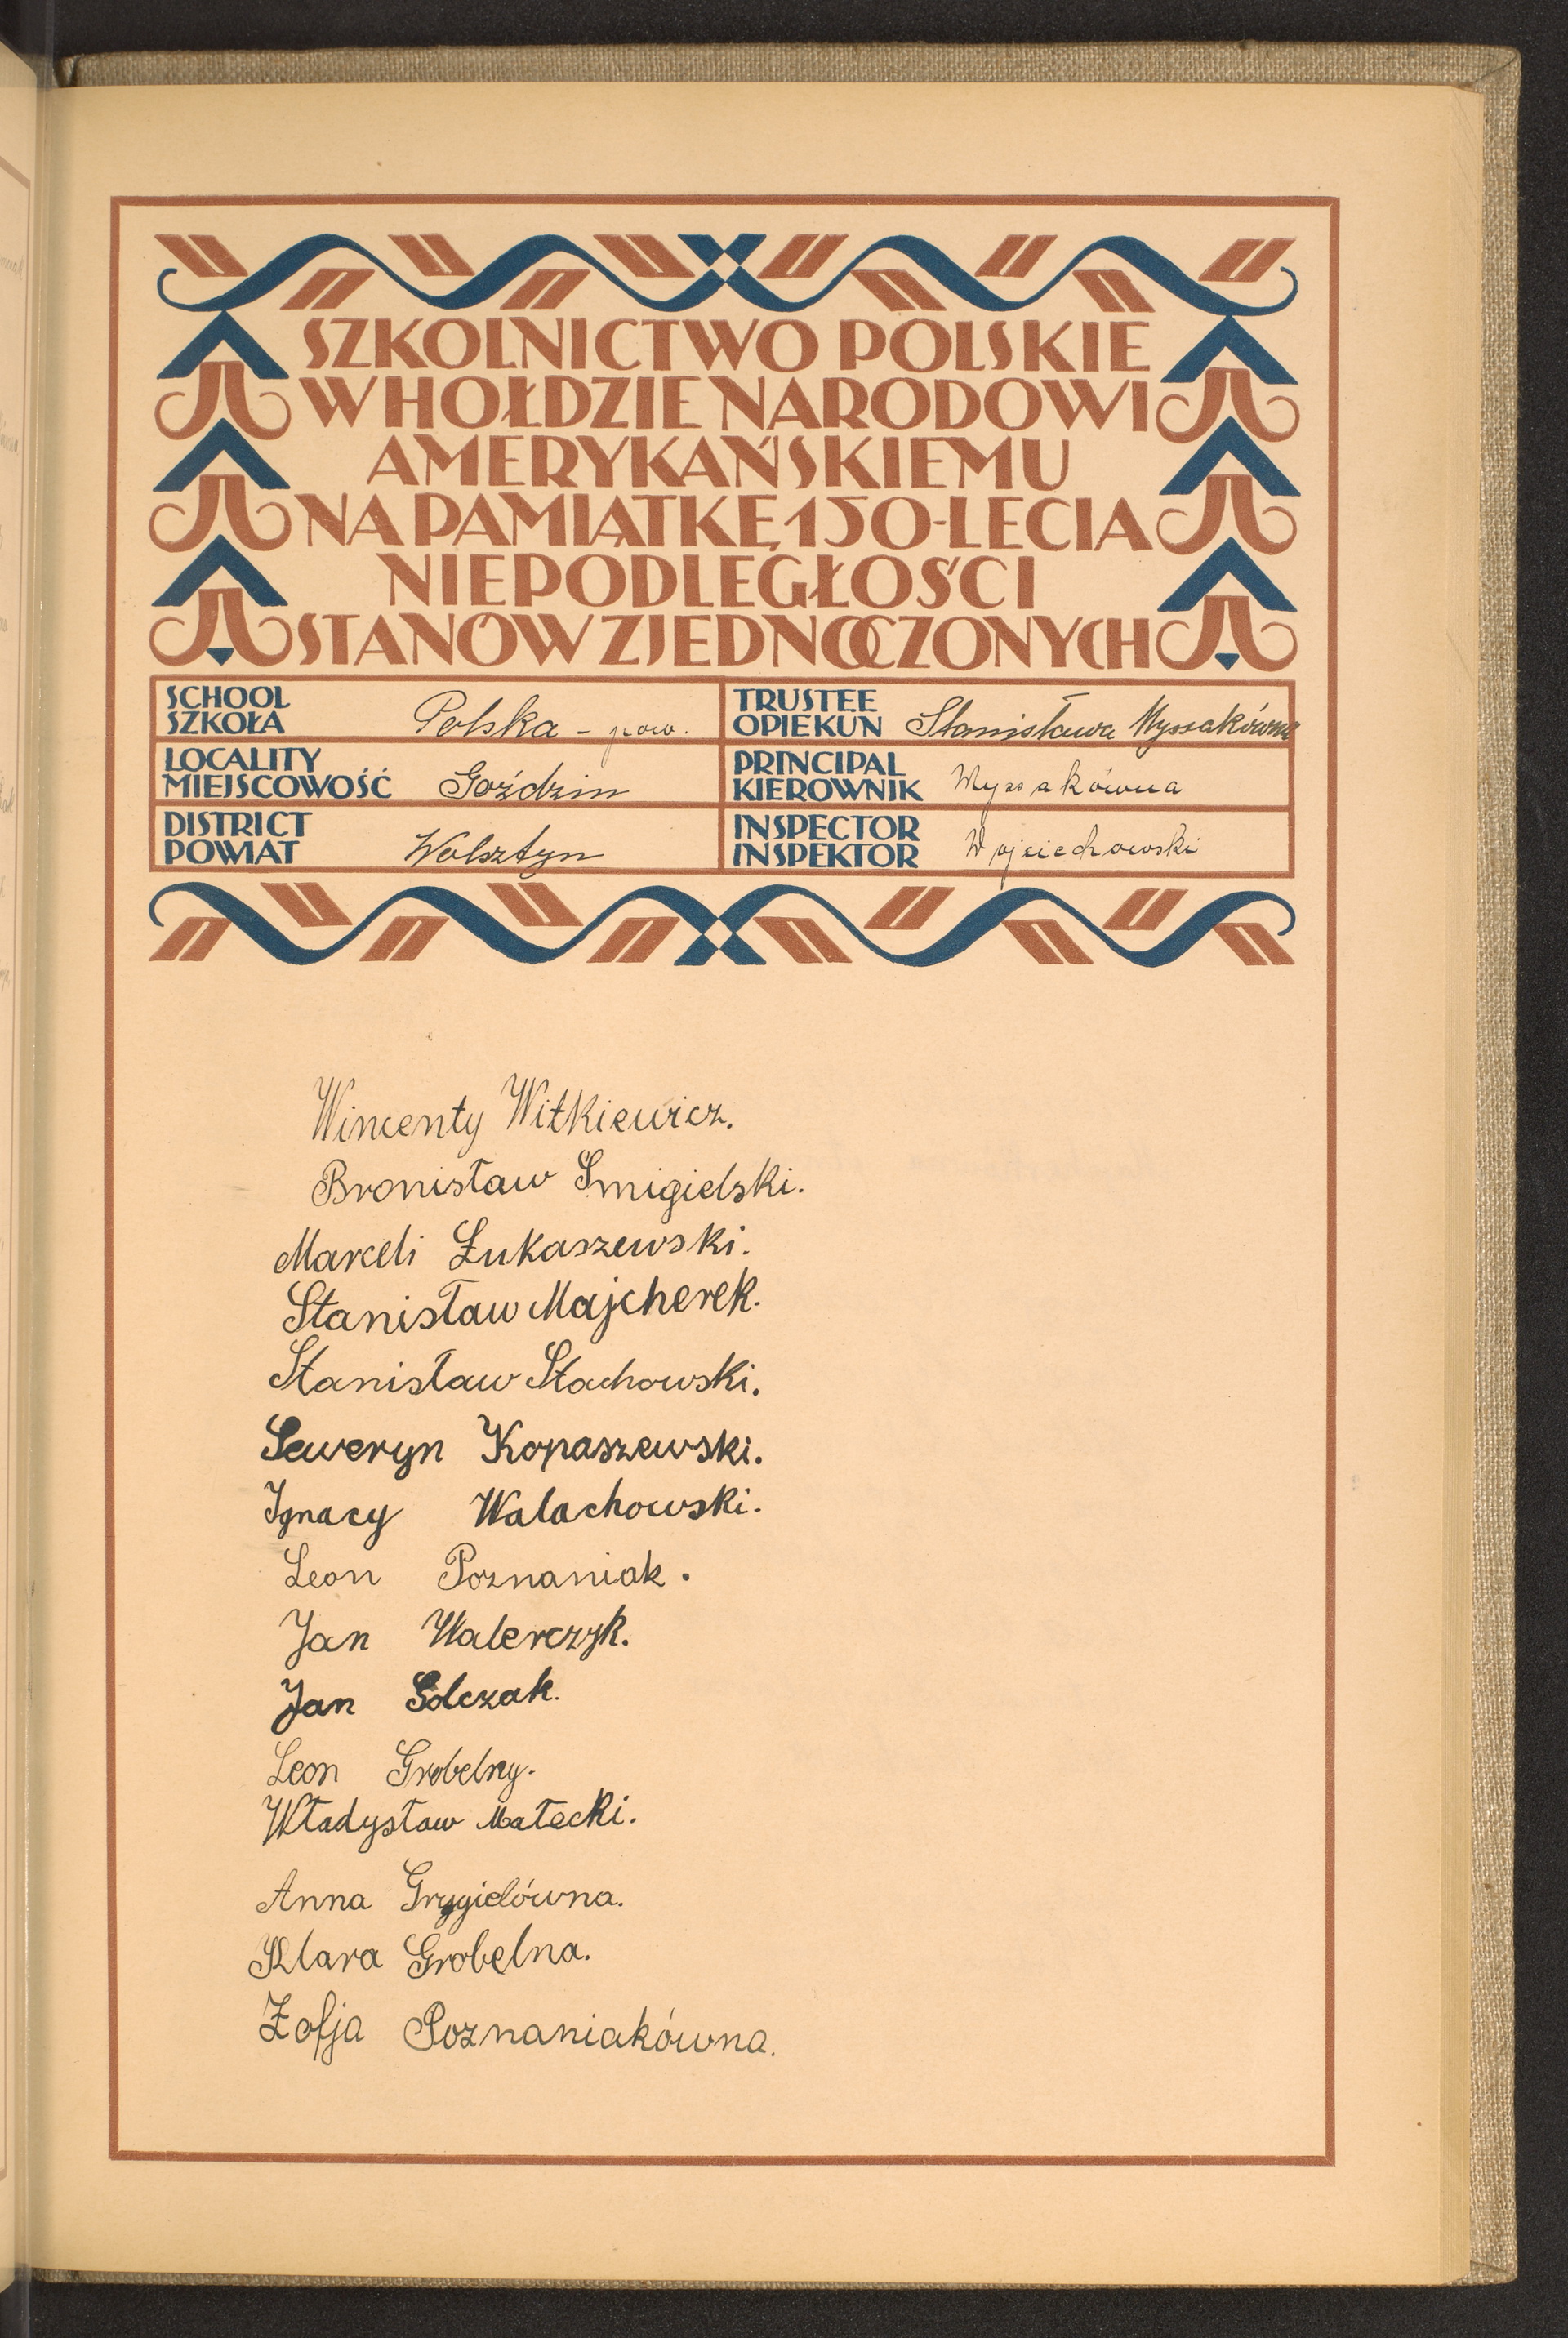 SZKOLNICTWO POLSKIE
W HOŁDZIE NARODOWI
AMERYKAŃSKIEMU
NA PAMIĄTKĘ 150-LECIA
NIEPODLEGŁOŚCI
STANÓW ZJEDNOCZONYCH
SCHOOL
SZKOŁA Polska - pow.
TRUSTEE
OPIEKUN Stanisława Wyssakówna
LOCALITY
MIEJSCOWOŚĆ Goździn
PRINCIPAL
KIEROWNIK Wyssakówna
DISTRICT
POWIAT Wolsztyn
INSPECTOR
INSPEKTOR Wojciechowski
Wincenty Witkiewicz.
Bronisław Smigielski.
Marceli Łukaszewski.
Stanisław Majcherek.
Stanisław Stachowski.
Seweryn Kopaszewski.
Ignacy Walachowski.
Leon Poznaniak.
Jan Walerczyk.
Jan Solczak.
Leon Grobelny.
Władysław Małecki.
Anna Grygielówna.
Klara Grobelna.
Zofja Poznaniakówna.